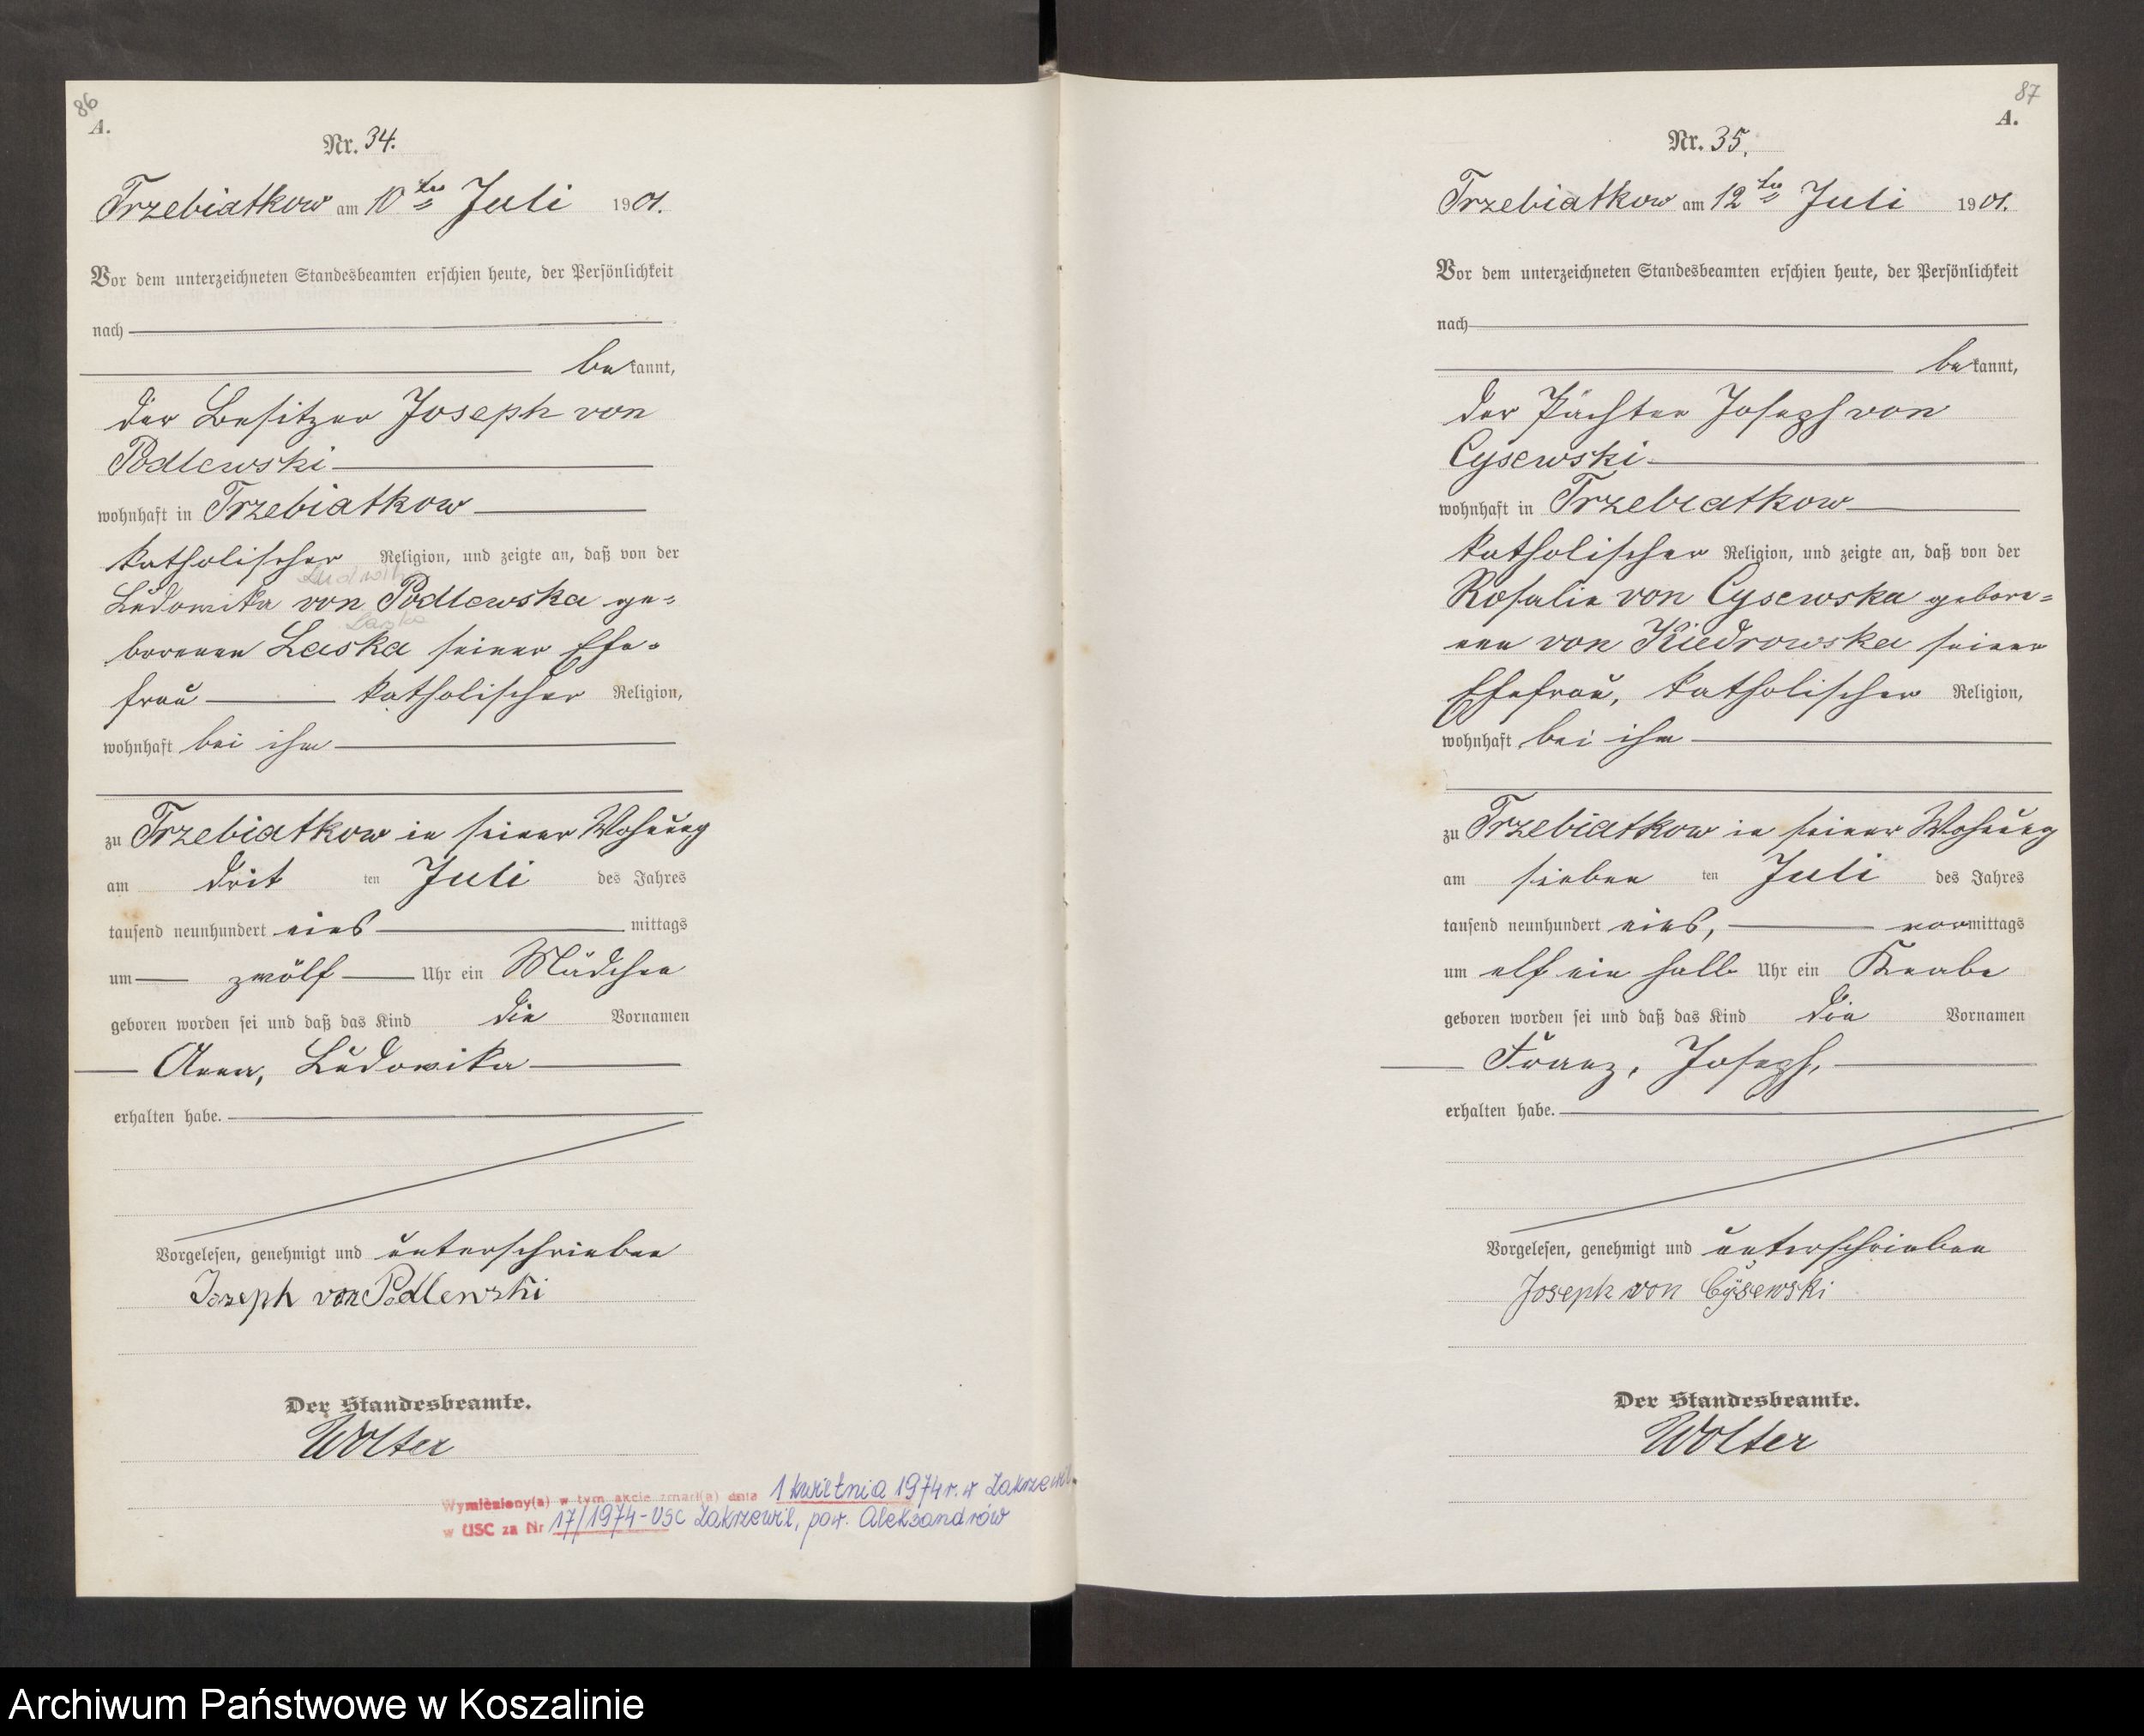 86
A.
Nr. 34.
Trzebiatkow am 10ten Juli 1901.
Vor dem unterzeichneten Standesbeamten erschien heute, der Persönlichkeit
nach
bekannt,
der Besitzer Joseph von
Podlewski
wohnhaft in Trzebiatkow
katholischer Religion, und zeigte an, daß von der
Ludwika
Ludowika von Podlewska ge=
Laska
borenen Laska seiner Ehe=
frau katholischer Religion,
wohnhaft bei ihm
zu Trzebiatkow in seiner Wohnung
am drit ten Juli des Jahres
tausend neunhundert eins mittags
um zwölf Uhr ein Mädchen
geboren worden sei und daß das Kind die Vornamen
Anna, Ludowika
erhalten habe.
Vorgelesen, genehmigt und unterschrieben
Joseph von Podlewski
Der Standesbeamte.
Wolter
Wymieniony(a) w tym akcie zmarł(a) dnia 1 kwietnia 1974 r. w Zakrzewie
w USC za Nr 17/1974 - USC Zakrzewie, pow. Aleksandrów
87
A.
Nr. 35.
Trzebiatkow am 12ten Juli 1901.
Vor dem unterzeichneten Standesbeamten erschien heute, der Persönlichkeit
nach
bekannt,
der Pächter Joseph von
Cysewski
wohnhaft in Trzebiatkow
katholischer Religion, und zeigte an, daß von der
Rosalie von Cysewska gebore=
nen von Kiedrowska seiner
Ehefrau, katholischer Religion,
wohnhaft bei ihm
zu Trzebiatkow in seiner Wohnung
am sieben ten Juli des Jahres
tausend neunhundert eins, vormittags
um elf ein halb Uhr ein Knabe
geboren worden sei und daß das Kind die Vornamen
Franz, Joseph,
erhalten habe.
Vorgelesen, genehmigt und unterschrieben
Joseph von Cÿsewski
Der Standesbeamte.
Wolter
Archiwum Państwowe w Koszalinie